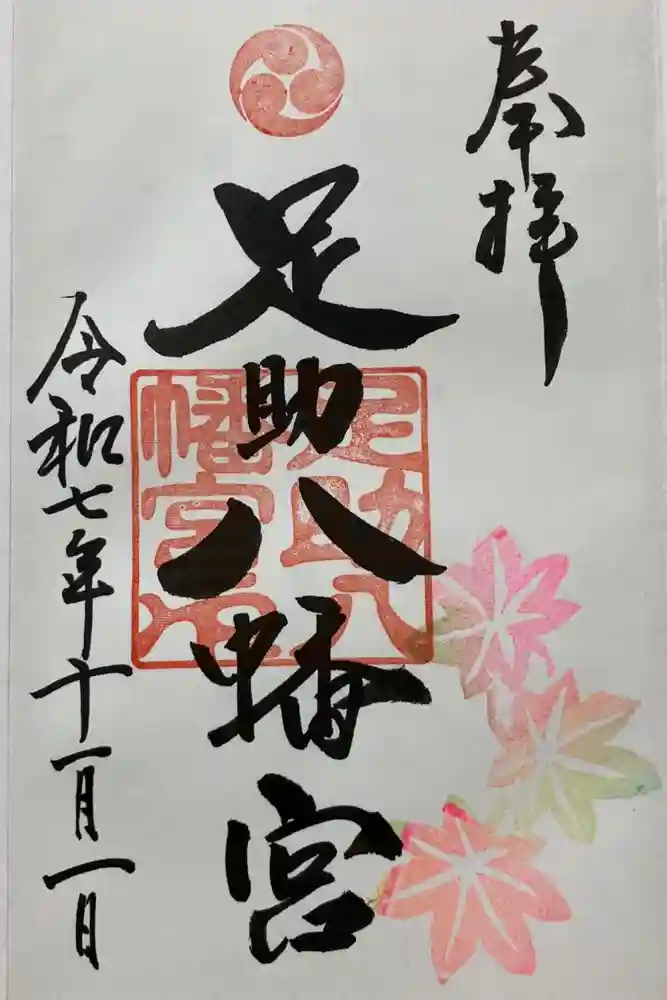 奉拝
足助八幡宮
足助八
幡宮印
令和七年十一月一日